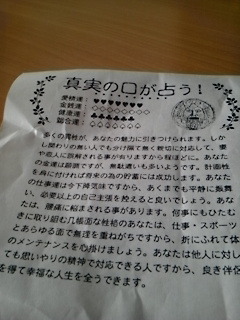 真実の口が占う！
愛情運：♥♥♥♥♥♥♥
金銭運：◇◇◇◇◇
健康運：♣♣♣♣♣♣
総合運：♤♤♤♤♤♤
多くの異性が、あなたの魅力に引きつけられます。しか
し関わりの無い人でも分け隔て無く親切に対応して、妻
や恋人に誤解される事が有りますから程ほどに。あなた
の金運は順調ですが、無駄遣いも多いようです。計画性
を身に付ければ将来の為の貯蓄には成功します。あなた
の仕事運は今下降気味ですから、あくまでも平静に振舞
い、必要以上の自己主張を控えると良いでしょう。あな
たは、腰痛に悩まされる事があります。何事にもひたむ
きに取り組む几帳面な性格のあなたは、仕事・スポーツ
とあらゆる面で無理を重ねがちですから、折にふれて体
のメンテナンスを心掛けましょう。あなたは他人に対し
ても思いやりの精神で対応できる人ですから、良き伴侶
を得て幸福な人生を全うできます。